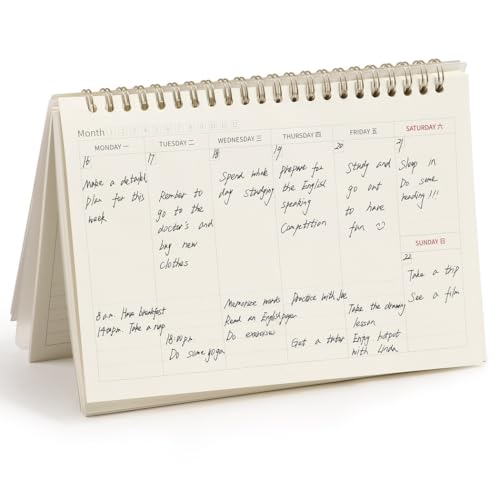 Month 1 2 3 4 5 6 7 8 9 10 11 12
MONDAY 一
16
Make a detailed
plan for this
week
8 a.m. Have breakfast
14:00 p.m. Take a nap
TUESDAY 二
17
Rember to
go to the
doctor's and
buy new
clothes
18:00 p.m
Do some yoga
WEDNESDAY 三
18
Spend whole
day studying
Memorize words
Read an English paper
Do exercise
THURSDAY 四
19
prepare for
the English
speaking
Competition
Practice with Joe
Get a tutor
FRIDAY 五
20
Study and
go out
to have
fun
Take the dancing
lesson
Enjoy hotpot
with Linda
SATURDAY 六
21
Sleep in
Do some
reading!!!
SUNDAY 日
22
Take a trip
See a film